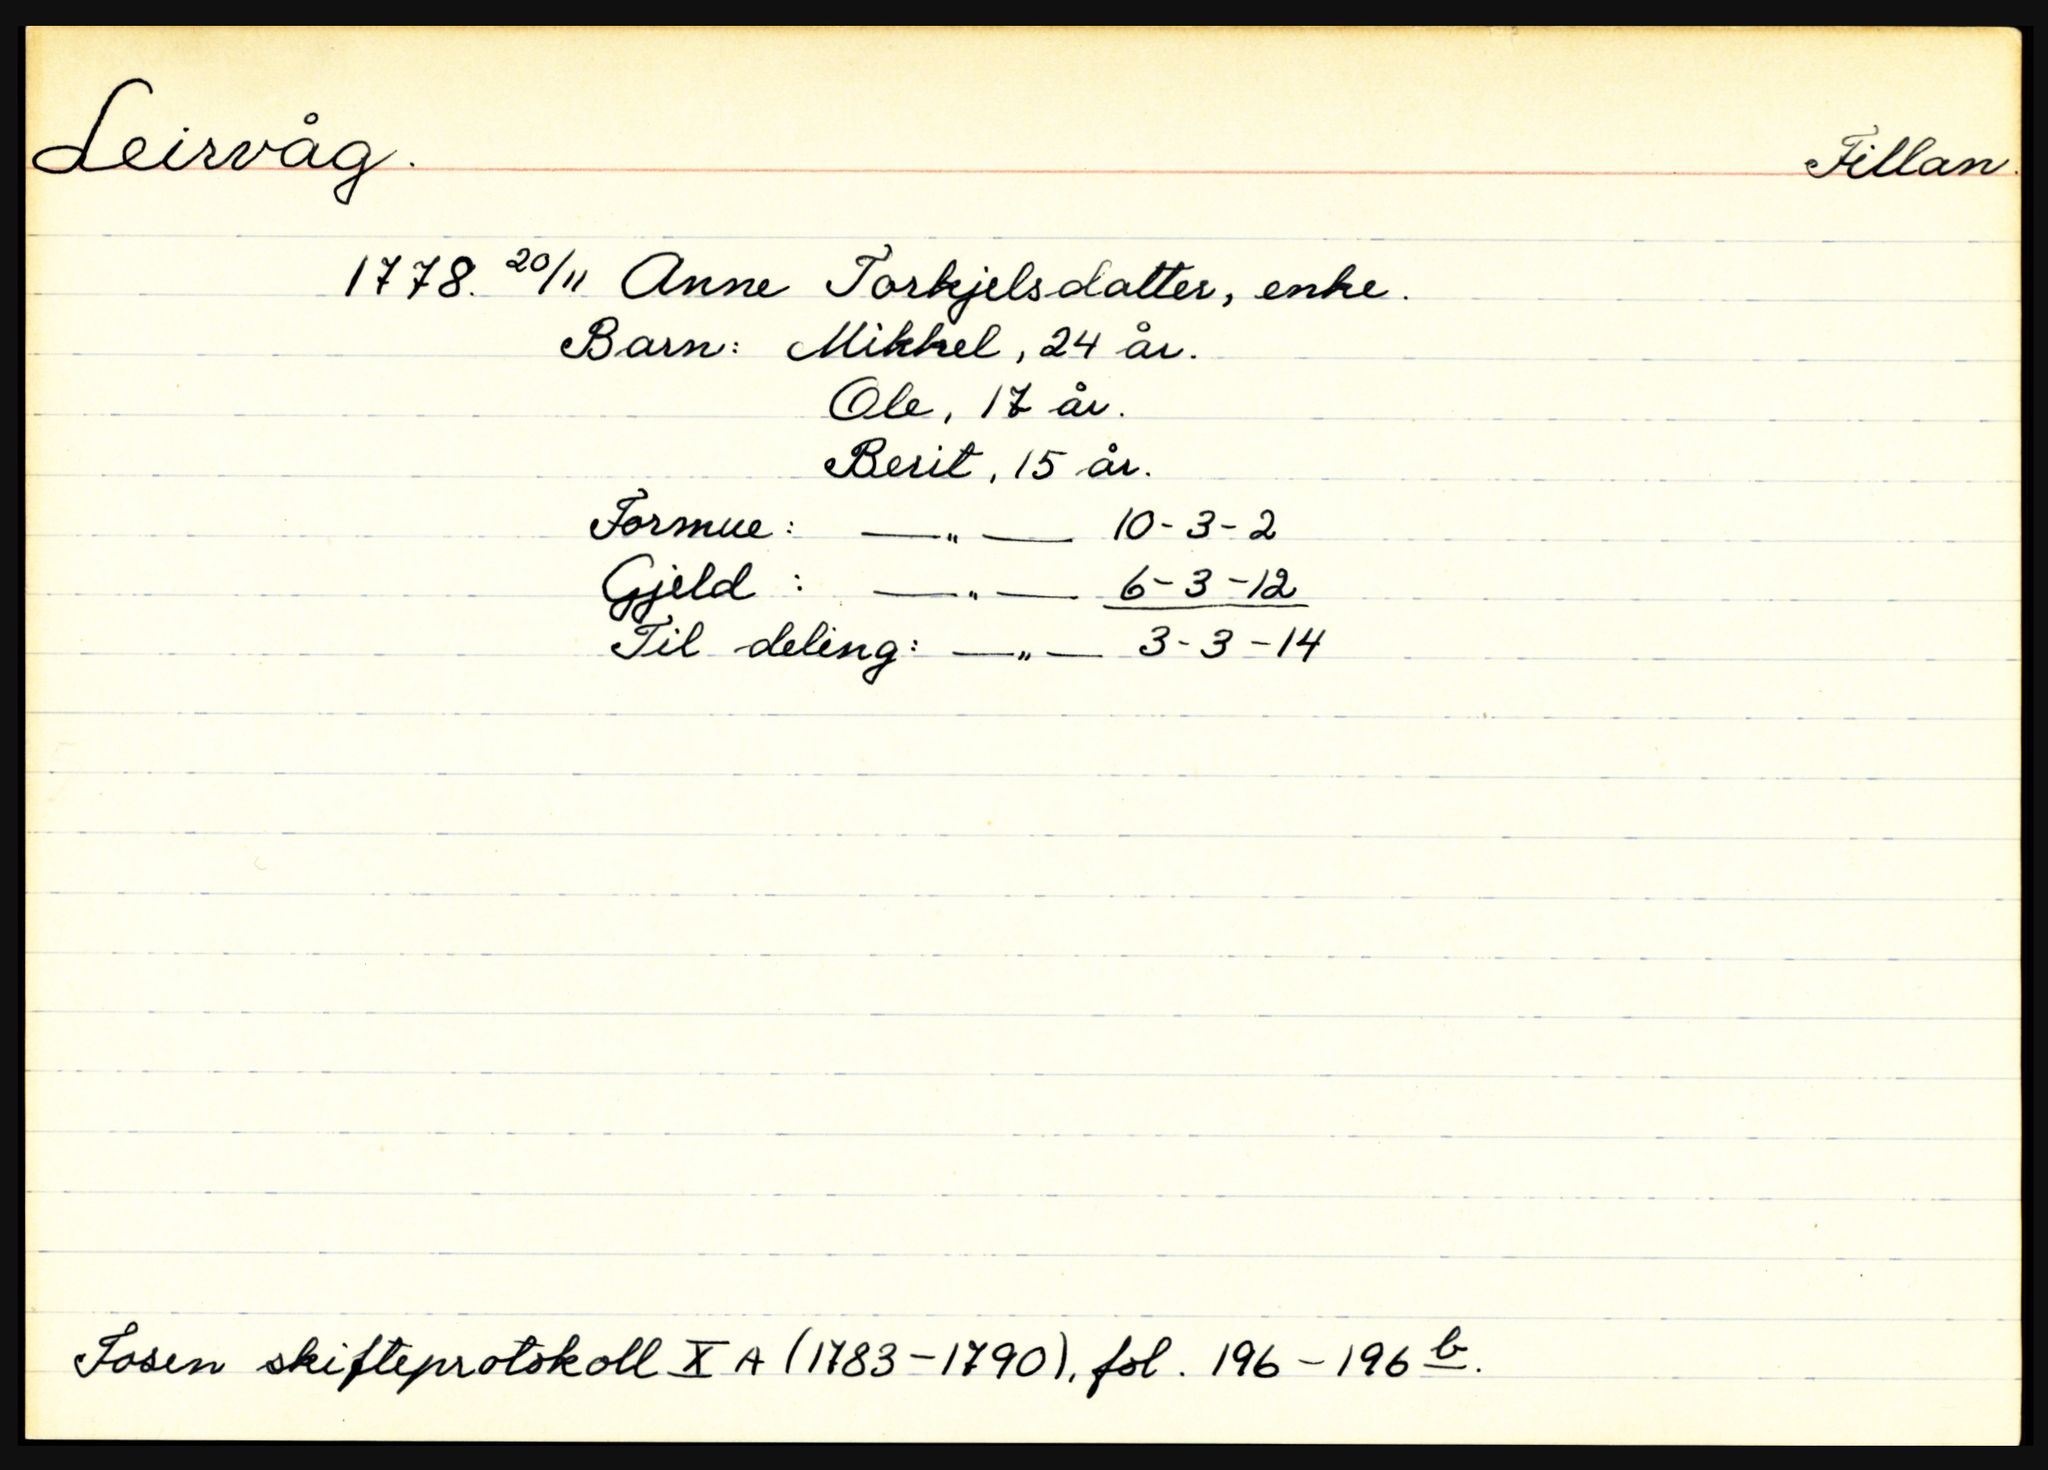 Leirvåg. Fillan.
1778. 20/11 Anne Torkjelsdatter, enke.
Barn: Mikkel, 24 år.
Ole, 17 år.
Berit, 15 år.
Formue: —"— 10-3-2
Gjeld : —"— 6-3-12
Til deling: —"— 3-3-14
Fosen skifteprotokoll X A (1783-1790), fol. 196-196 b.